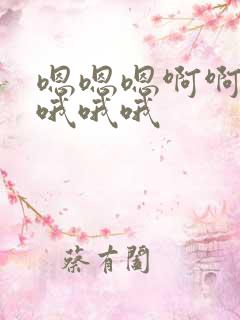 嗯嗯嗯啊啊
哦哦哦
蔡有闔